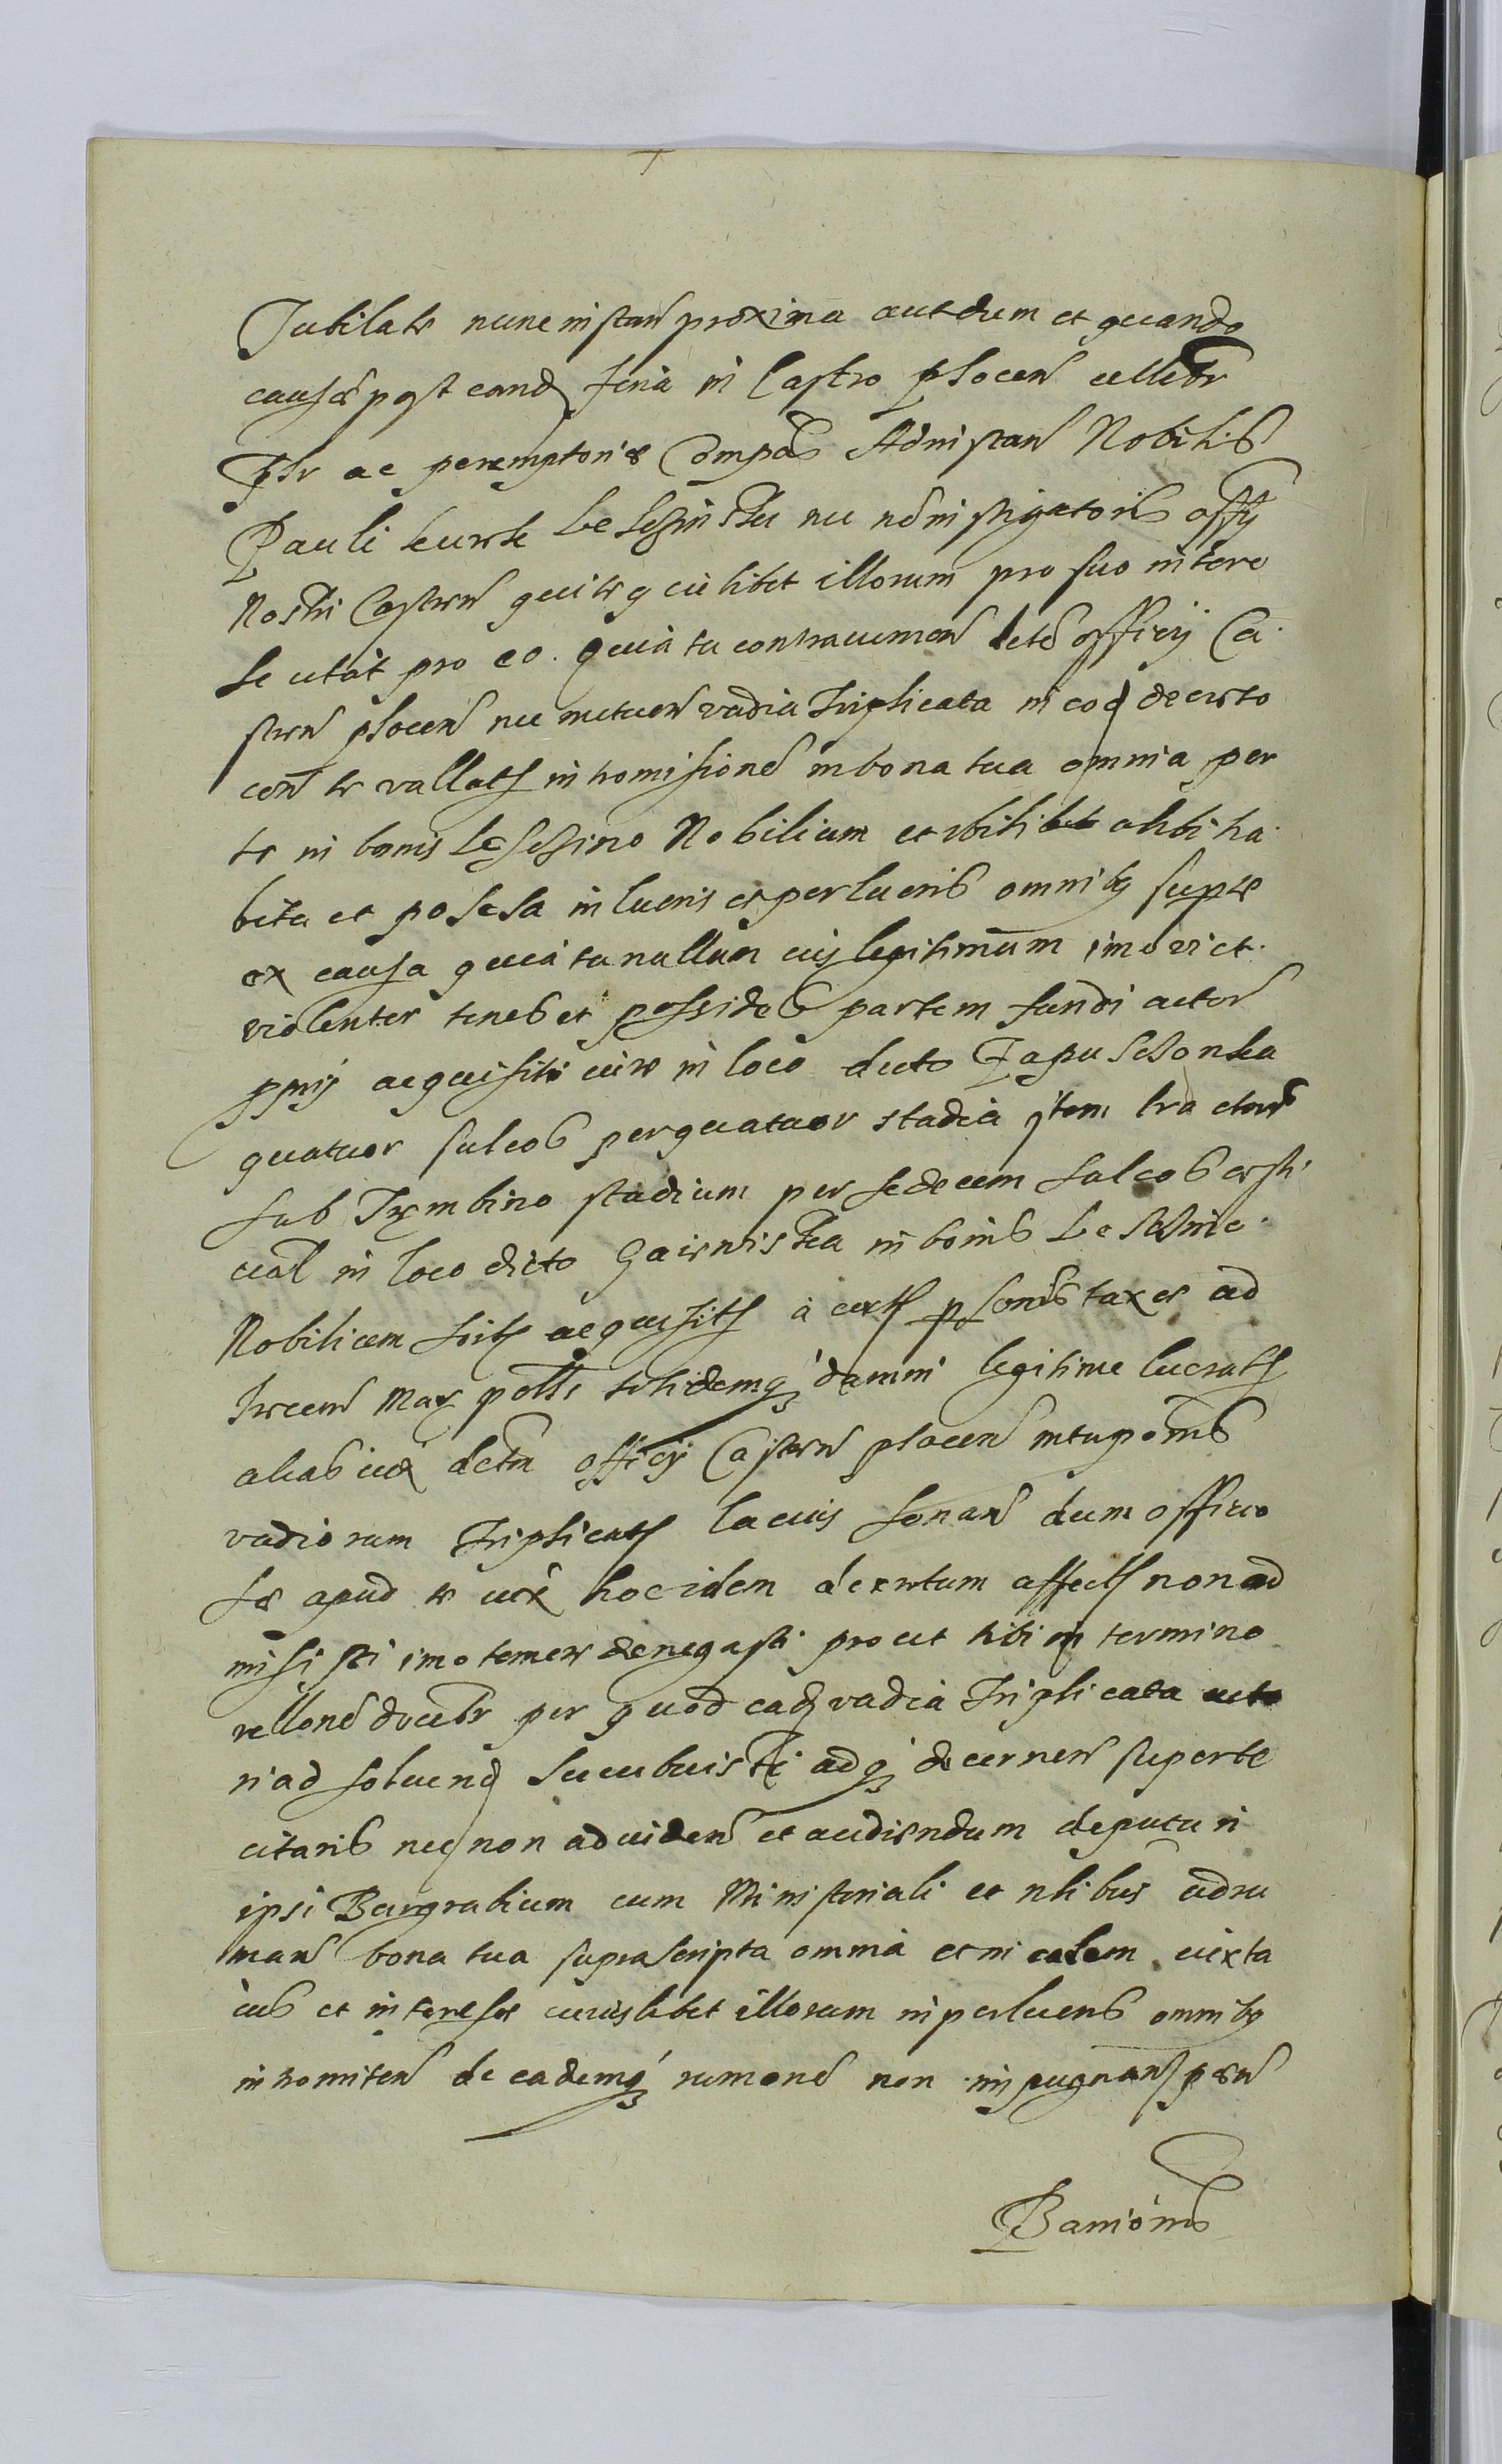 Jubilate nunc instan proxima aut dum et quando
causæ post eand feria in Castro plocen cellebr
Plr ac peremptorie Compās Ad instan Nobilis
Pauli kurek Leszinsky nec nō instigatoris offy
Nostri Castren qui te q cùlibet illorum pro suo intere
se citāt pro eo. quia tu contraumen dcto officij Ca
stren plocen nec metuen vadia Triplicata in eod decreto
con te vallats intromissionē in bona tua omnia per
te in bonis Lessessino Nobilium et ubilibet alibi ha
bita et posessa inlucris et per lucris omnibq supte
ex causa quia tu nullum ius legitimum imo vict.
violenter tenes et possides partem fundi actor
ppriis acquisiti iure in loco dicto Zapusczonka
quatuor sulcos per quatuor stadia item tractum
sub Trembino stadium per sedecem sulcos esti
ual in loco dicto Gaiewiska in bonis Leszsine
Nobilium sits acquisits à certs psonis taxes ad
Trecen Mar polls totidemq damni legitime lucrats
alias iux dctm officij Castren plocen intuponis
vadiorum Triplicats lacius sonan dum officio
se apud te iux hoc idem decretum affects non ad
misisti imo temere denegasti prout tibi in termino
rellonē docebr per quod ead vadia Triplicata acto
ri ad soluend sucubuisti adq decernen super te
citaris nec non ad uiden et audiendum deputari
ipsi Burgrabium cum Ministeriali et nlibus adru
man bona tua suprascripta omnia et in eadem iuxta
ius et interesse cuiuslibet illorum in perlucris omnibq
intromiten de eademq rumonē non impugnan pœn
Banionis